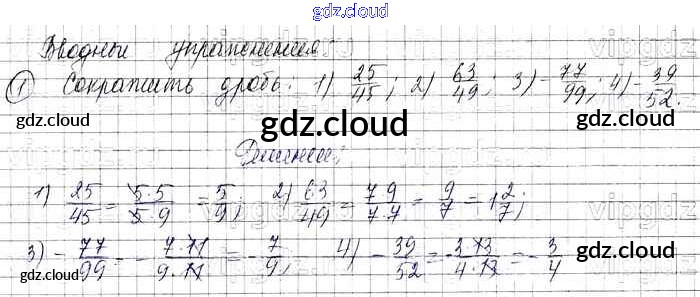 gdz.cloud
Вводные упражнения
1 Сократить дробь: 1) 25/45; 2) 63/49; 3) -77/99; 4) -39/52.
gdz.cloud
gdz.cloud
gdz.cloud
Решение:
1) 25/45 = 5·5/5·9 = 5/9; 2) 63/49 = 7·9/7·7 = 9/7 = 1 2/7;
3) -77/99 = -7·11/9·11 = -7/9; 4) -39/52 = -3·13/4·13 = -3/4
gdz.cloud
gdz.cloud
gdz.cloud